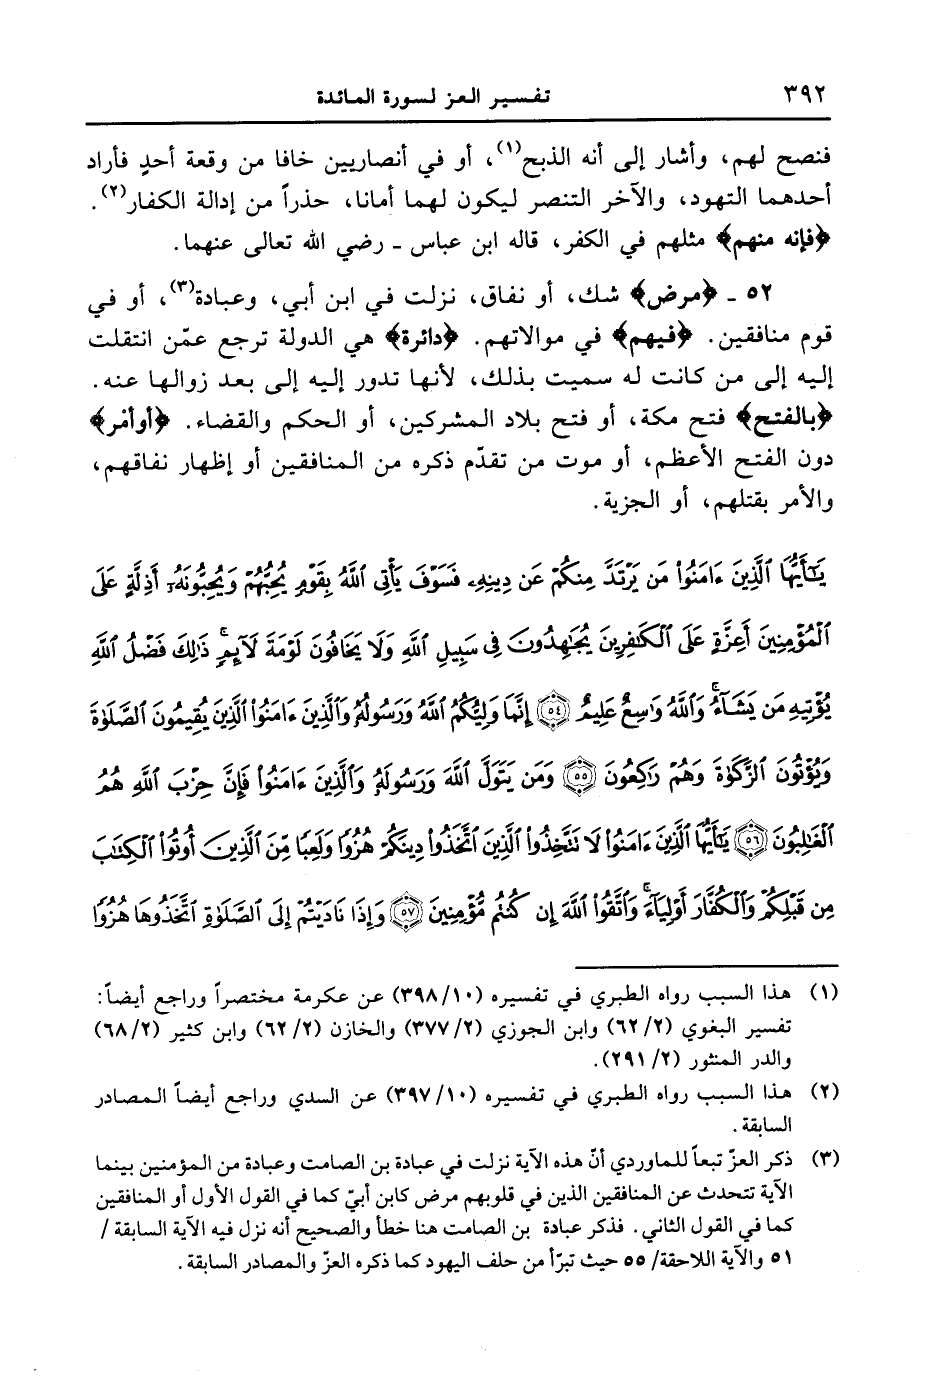 ٣٩٢ تفسير العز لسورة المائدة
فنصح لهم، وأشار إلى أنه الذبح(١)، أو في أنصاريين خافا من وقعة أحدٍ فأراد
أحدهما التهود، والآخر التنصر ليكون لهما أمانا، حذراً من إدالة الكفار(٢).
﴿فإنه منهم﴾ مثلهم في الكفر، قاله ابن عباس - رضي الله تعالى عنهما.
٥٢ - ﴿مرض﴾ شك، أو نفاق، نزلت في ابن أبي، وعبادة(٣)، أو في
قوم منافقين. ﴿فيهم﴾ في موالاتهم. ﴿دائرة﴾ هي الدولة ترجع عمّن انتقلت
إليه إلى من كانت له سميت بذلك، لأنها تدور إليه إلى بعد زوالها عنه.
﴿بالفتح﴾ فتح مكة، أو فتح بلاد المشركين، أو الحكم والقضاء. ﴿أوأمْر﴾
دون الفتح الأعظم، أو موت من تقدّم ذكره من المنافقين أو إظهار نفاقهم،
والأمر بقتلهم، أو الجزية.
يَٰٓأَيُّهَا ٱلَّذِينَ ءَامَنُوا۟ مَن يَرْتَدَّ مِنكُمْ عَن دِينِهِۦ فَسَوْفَ يَأْتِى ٱللَّهُ بِقَوْمٍ يُحِبُّهُمْ وَيُحِبُّونَهُۥٓ أَذِلَّةٍ عَلَى
ٱلْمُؤْمِنِينَ أَعِزَّةٍ عَلَى ٱلْكَٰفِرِينَ يُجَٰهِدُونَ فِى سَبِيلِ ٱللَّهِ وَلَا يَخَافُونَ لَوْمَةَ لَآئِمٍ ۚ ذَٰلِكَ فَضْلُ ٱللَّهِ
يُؤْتِيهِ مَن يَشَآءُ ۚ وَٱللَّهُ وَٰسِعٌ عَلِيمٌ ﴿٥٤﴾ إِنَّمَا وَلِيُّكُمُ ٱللَّهُ وَرَسُولُهُۥ وَٱلَّذِينَ ءَامَنُوا۟ ٱلَّذِينَ يُقِيمُونَ ٱلصَّلَوٰةَ
وَيُؤْتُونَ ٱلزَّكَوٰةَ وَهُمْ رَٰكِعُونَ ﴿٥٥﴾ وَمَن يَتَوَلَّ ٱللَّهَ وَرَسُولَهُۥ وَٱلَّذِينَ ءَامَنُوا۟ فَإِنَّ حِزْبَ ٱللَّهِ هُمُ
ٱلْغَٰلِبُونَ ﴿٥٦﴾ يَٰٓأَيُّهَا ٱلَّذِينَ ءَامَنُوا۟ لَا تَتَّخِذُوا۟ ٱلَّذِينَ ٱتَّخَذُوا۟ دِينَكُمْ هُزُوًا وَلَعِبًا مِّنَ ٱلَّذِينَ أُوتُوا۟ ٱلْكِتَٰبَ
مِن قَبْلِكُمْ وَٱلْكُفَّارَ أَوْلِيَآءَ ۚ وَٱتَّقُوا۟ ٱللَّهَ إِن كُنتُم مُّؤْمِنِينَ ﴿٥٧﴾ وَإِذَا نَادَيْتُمْ إِلَى ٱلصَّلَوٰةِ ٱتَّخَذُوهَا هُزُوًا
(١) هذا السبب رواه الطبري في تفسيره (٣٩٨/١٠) عن عكرمة مختصراً وراجع أيضاً:
تفسير البغوي (٦٢/٢) وابن الجوزي (٣٧٧/٢) والخازن (٦٢/٢) وابن كثير (٦٨/٢)
والدر المنثور (٢٩١/٢).
(٢) هذا السبب رواه الطبري في تفسيره (٣٩٧/١٠) عن السدي وراجع أيضاً المصادر
السابقة.
(٣) ذكر العزّ تبعاً للماوردي أنّ هذه الآية نزلت في عبادة بن الصامت وعبادة من المؤمنين بينما
الآية تتحدث عن المنافقين الذين في قلوبهم مرض كابن أبيّ كما في القول الأول أو المنافقين
كما في القول الثاني. فذكر عبادة بن الصامت هنا خطأ والصحيح أنه نزل فيه الآية السابقة /
٥١ والآية اللاحقة/ ٥٥ حيث تبرّأ من حلف اليهود كما ذكره العزّ والمصادر السابقة.